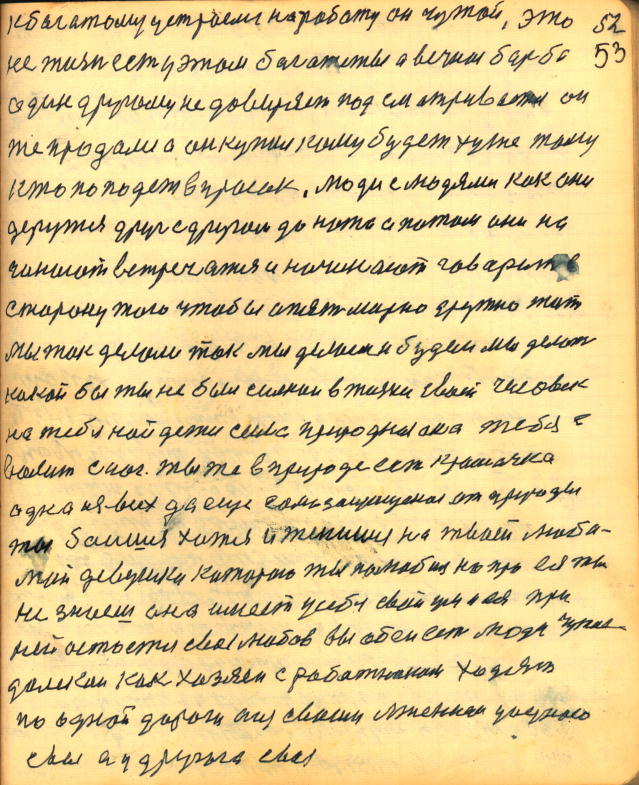 к богатому устроемс на работу он чужой, это 52
не жизн ест у этом богатстви а вечная барба 53
один другому не доверяет под сматривается он
же продали а он купил кому будет хуже тому
кто поподет в просак. Люди с людями как они
деружтся друг с другом до ножа а потом они на
чинают встречатя и начинают говорит в
сторону того чтобы опят мирно дружно жит
мы так делали так мы делаем и будем мы делат
какой бы ты не был силнои в жизни свой человек
на тебя найдетси сила природная она тебя с
волит с ног. ты же в природе ест крошачка
одна из них да еще самозащищеная от природы
ты боишся хотя и женишся на твоей люби-
мой девушки которою ты полюбил но про ея ты
не знаеш она имеет у себя свой при
ней остается своя любов вы обои ест люди
далекаи как хозяен с работником ходят
по одной дороги а у своим мнением у одного
свои а у другога свои